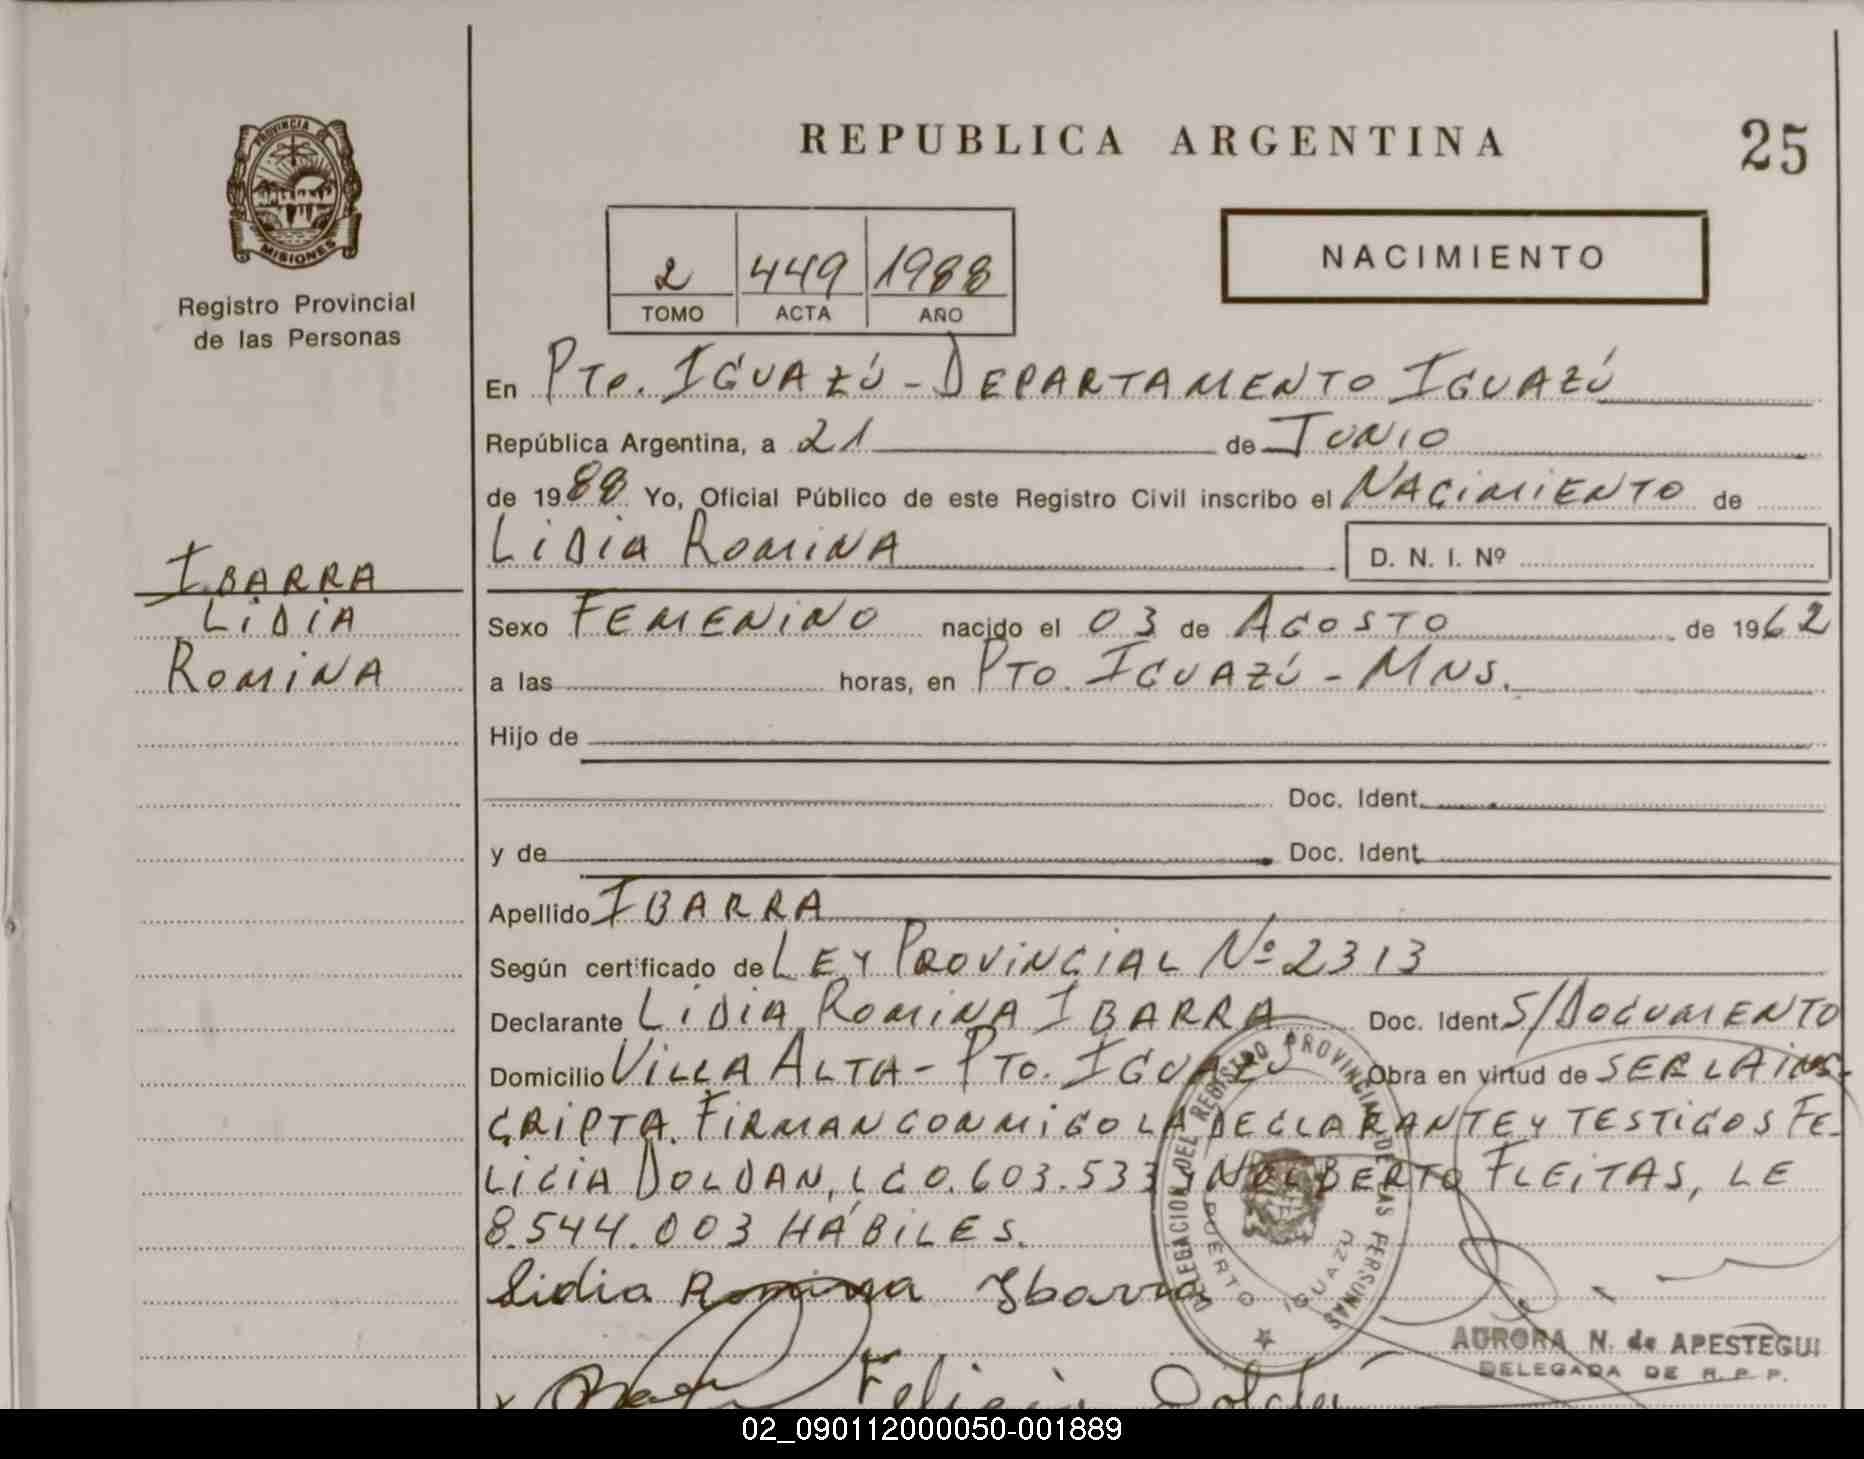 REPUBLICA ARGENTINA
25
PROVINCIA DE
MISIONES
Registro Provincial
de las Personas
2 449 1988
TOMO ACTA AÑO
NACIMIENTO
En Pto. IGUAZÚ - DEPARTAMENTO IGUAZÚ
República Argentina, a 21 de JUNIO
de 1988 Yo, Oficial Público de este Registro Civil inscribo el NACIMIENTO de
LIDIA ROMINA
D. N. I. Nº
IBARRA
LIDIA
ROMINA
Sexo FEMENINO nacido el 03 de AGOSTO de 1962
a las horas, en PTO. IGUAZÚ - MNS.
Hijo de
Doc. Ident.
y de Doc. Ident.
Apellido IBARRA
Según certificado de LEY PROVINCIAL Nº 2313
Declarante LIDIA ROMINA IBARRA Doc. Ident. S/DOCUMENTO
Domicilio VILLA ALTA - PTO. IGUAZÚ Obra en virtud de SER LA INS-
CRIPTA. FIRMAN CONMIGO LA DECLARANTE Y TESTIGOS FE-
LICIA DOLDAN, LC 0.603.533 y NOLBERTO FLEITAS, LE
8.544.003 HÁBILES.
Lidia Romina Ibarra
DELEGACION DEL REGISTRO PROVINCIAL DE LAS PERSONAS
PUERTO IGUAZU
AURORA N. de APESTEGUI
DELEGADA DE R. P. P.
Felicia
02_090112000050-001889